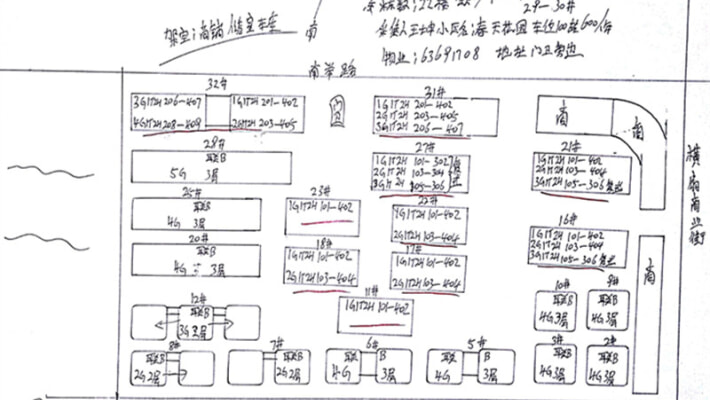 29-30#
物业:63691708 地址门卫旁边
南华路
32#
3G1T2H 206-407
1G1T2H 201-402
4G1T2H 208-409
2G1T2H 203-405
31#
1G1T2H 201-402
2G1T2H 203-405
3G1T2H 206-407
商
商
28#
联B
5G 3层
27#
1G1T2H 101-302
2G1T2H 103-304
3G1T2H 305-306
21#
1G1T2H 101-402
2G1T2H 103-404
3G1T2H 105-306
25#
联B
4G 3层
23#
1G1T2H 101-402
22#
1G1T2H 101-402
2G1T2H 103-404
20#
联B
4G 3层
18#
1G1T2H 101-402
2G1T2H 103-404
17#
1G1T2H 101-402
2G1T2H 103-404
16#
1G1T2H 101-402
2G1T2H 103-404
3G1T2H 105-306
商
12#
联B
3G 2层
11#
1G1T2H 101-402
10#
联B
4G 3层
9#
联B
4G 3层
8#
联B
2G 2层
7#
联B
2G 2层
6#
联 B
4G 3层
5#
联 B
4G 3层
3#
联B
4G 3层
2#
联B
4G 3层